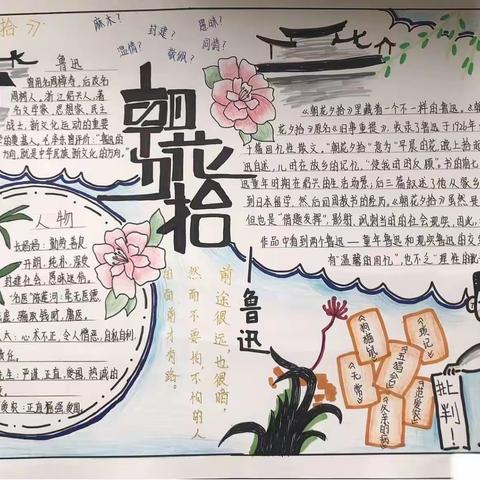 拾
麻木？
封建？
愚昧？
温情？
敬佩？
同情？
鲁迅
曾用名周樟寿，后改名
周树人，浙江绍兴人，著
名文学家、思想家、民主
战士，新文化运动的重要
的奠基人。毛泽东曾评价："鲁迅的
方向，就是中华民族新文化的方向。"
朝花夕拾
—鲁迅
人物
长妈妈：勤劳善良
开朗，纯朴，深受
封建社会，愚昧迷信。
"名医"陈莲河：毫无医德，
骗取钱财，庸医。
太太：心术不正，令人憎恶，自私自利.
先生：严谨，正直，爱国，热诚的
正直倔强爱国.
前途很远，也很暗，
然而不要怕，不怕的人
的面前才有路。
《朝花夕拾》里藏着一个不一样的鲁迅，
花夕拾》原名《旧事重提》，收录了鲁迅于1926年
十篇回忆性散文，"朝花夕拾"意为"早晨的花，晚上拾起
迅自述，儿时在故乡的记忆，"使我时时反顾"。书的前七
迅童年时期在绍兴的生活场景；后三篇叙述了他从家乡
到日本留学，然后回国教书的经历。《朝花夕拾》虽然
但也是"借题发挥"，影射、讽刺当时的社会现实，因此，
作品中看到两个鲁迅——童年鲁迅和现实鲁迅的交
有"温馨的回忆"，也不乏"理性的
《狗猫鼠》
《琐记》
《五猖会》
《无常》
《范爱农》
《父亲的病》
批判！